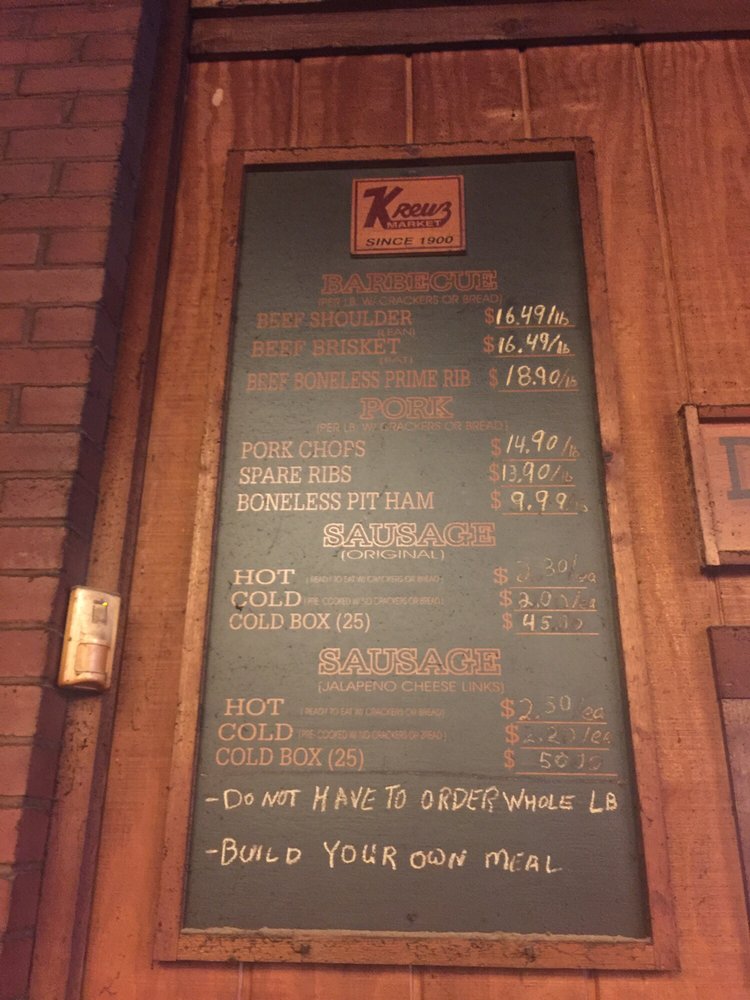 Kreuz
MARKET
SINCE 1900
BARBECUE
(PER LB. W/ CRACKERS OR BREAD)
BEEF SHOULDER $16.49/lb
(LEAN)
BEEF BRISKET $16.49/lb
(FAT)
BEEF BONELESS PRIME RIB $18.90/lb
PORK
(PER LB. W/ CRACKERS OR BREAD)
PORK CHOPS $14.90/lb
SPARE RIBS $13.90/lb
BONELESS PIT HAM $9.99
SAUSAGE
(ORIGINAL)
HOT (READY TO EAT W/ CRACKERS OR BREAD) $2.30/ea
COLD (PRE-COOKED W/ NO CRACKERS OR BREAD) $2.00/ea
COLD BOX (25) $45.00
SAUSAGE
(JALAPENO CHEESE LINKS)
HOT (READY TO EAT W/ CRACKERS OR BREAD) $2.50/ea
COLD (PRE-COOKED W/ NO CRACKERS OR BREAD) $2.20/ea
COLD BOX (25) $50
-DO NOT HAVE TO ORDER WHOLE LB
-BUILD YOUR OWN MEAL